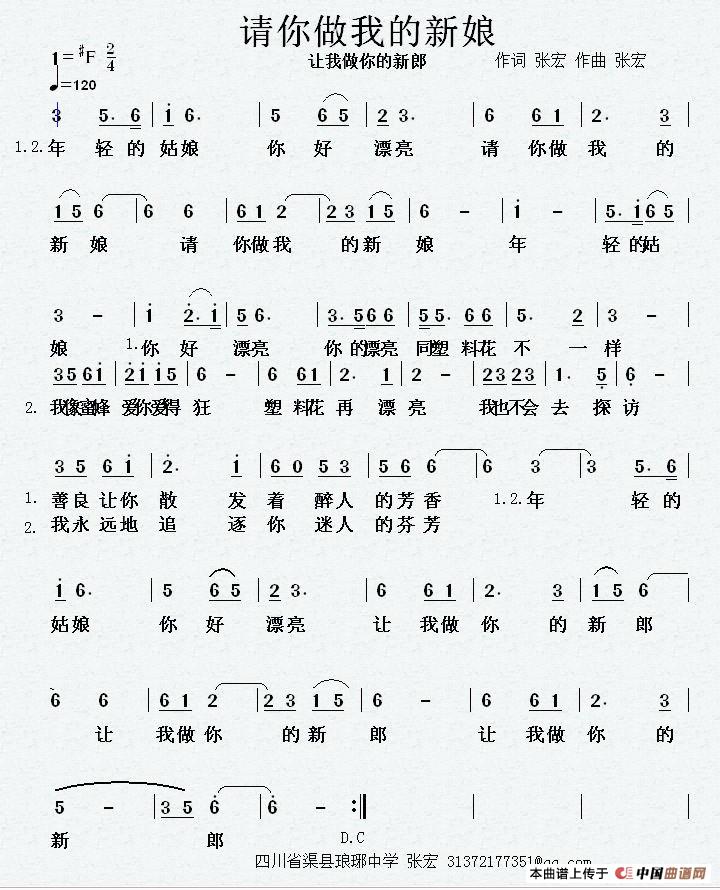 请你做我的新娘
1=#F 2/4
让我做你的新郎 作词 张宏 作曲 张宏
♩=120
3 5. 6 | i 6. | 5 6 5 | 2 3 | 6 6 1 | 2. 3 |
1.2. 年 轻的 姑娘 你 好 漂亮 请 你做 我 的
1 5 6 | 6 6 | 6 1 2 | 2 3 1 5 | 6 - | i - | 5. i 6 5 |
新 娘 请 你做我 的新 娘 年 轻的姑
3 - | i 2. i | 5 6. | 3. 5 6 6 | 5 5. 6 6 | 5. 2 | 3 - |
娘 1. 你 好 漂亮 你 的漂亮 同塑 料花 不 一 样
3 5 6 i | 2 i i 5 | 6 - | 6 6 1 | 2. 1 | 2 - | 2 3 2 3 | 1. 5 | 6 - |
2. 我像蜜蜂 爱你爱得 狂 塑 料花 再 漂 亮 我也不会 去 探 访
3 5 6 i | 2. i | 6 0 5 3 | 5 6 6 | 6 3 | 3 | 5. 6 |
1. 善良 让你 散 发 着 醉人 的芳 香 1.2.年 轻的
2. 我永 远地 追 逐 你 迷人 的芬 芳
i 6. | 5 6 5 | 2 3 | 6 6 1 | 2. 3 | 1 5 6 |
姑娘 你 好 漂亮 让 我做 你 的 新 郎
6 6 | 6 1 2 | 2 3 1 5 | 6 - | 6 6 1 | 2. 3 |
让 我做 你 的 新 郎 让 我做 你 的
5 - | 3 5 6 | 6 - :||
新 郎 D.C
四川省渠县琅琊中学 张宏 31372177351@qq.com
本曲谱上传于 中国曲谱网